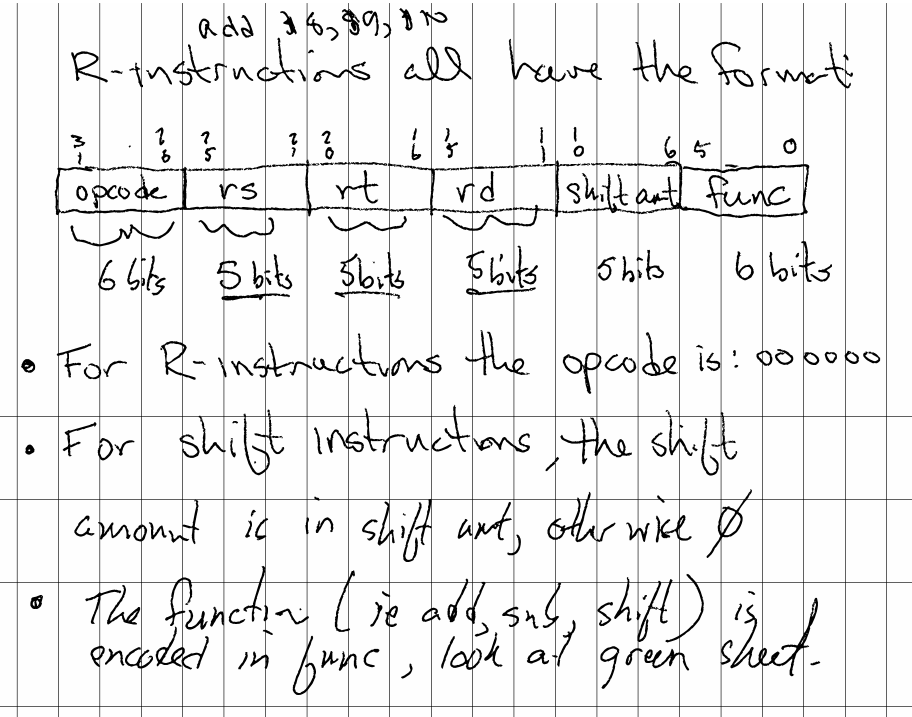 add $8, $9, $10
R-instructions all have the format:
31 26 25 21 20 16 15 11 10 6 5 0
opcode rs rt rd shift amt func
6 bits 5 bits 5 bits 5 bits 5 bits 6 bits
• For R-instructions the opcode is: 000000
• For shift instructions, the shift
amount is in shift amt, otherwise Ø
• The function (ie add, sub, shift) is
encoded in func, look at green sheet.